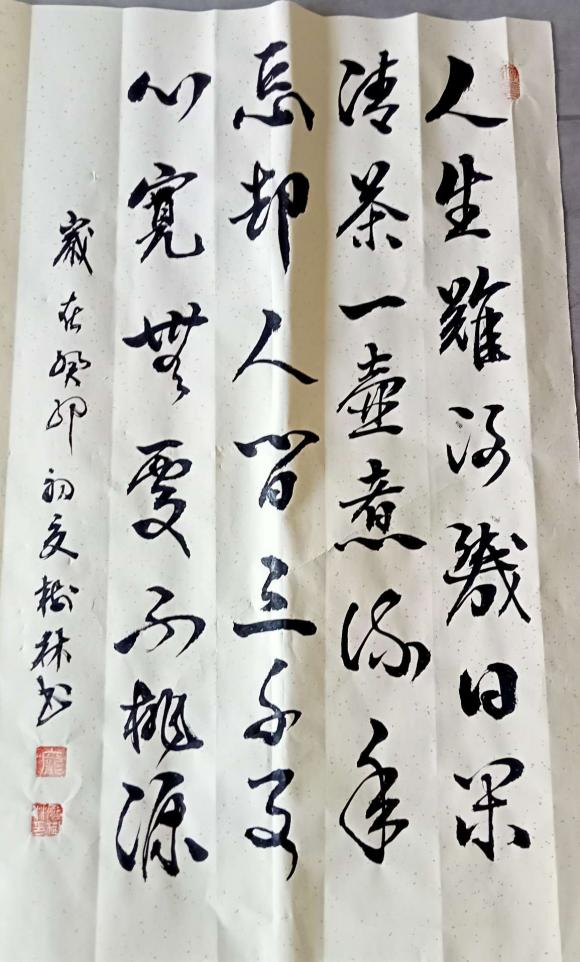 人生難得幾日閑
清茶一壺煮流年
忘却人間三千事
心寬無處不桃源
歲在癸卯初夏樹林書
龐